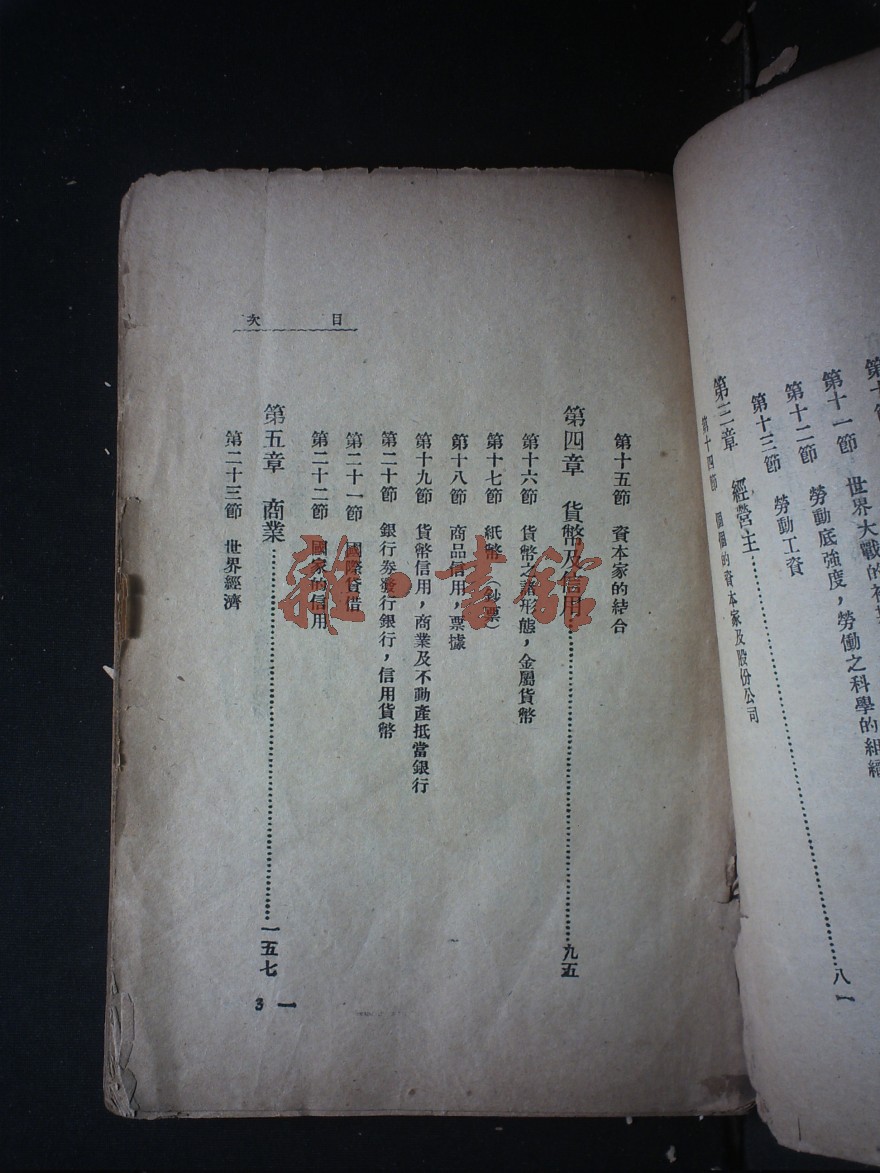 第十一節　世界大戰的
第十二節　勞動底強度，勞働之科學的組織
第十三節　勞動工資
第三章　經營主……八一
第十四節　個個的資本家及股份公司
目次
第十五節　資本家的結合
第四章　貨幣及信用……九五
第十六節　貨幣之諸形態，金屬貨幣
第十七節　紙幣（鈔票）
第十八節　商品信用，票據
第十九節　貨幣信用，商業及不動產抵當銀行
第二十節　銀行券發行銀行，信用貨幣
第二十一節　國際貸借
第二十二節　國家的信用
第五章　商業……一五七
第二十三節　世界經濟
3 一
雜·書館